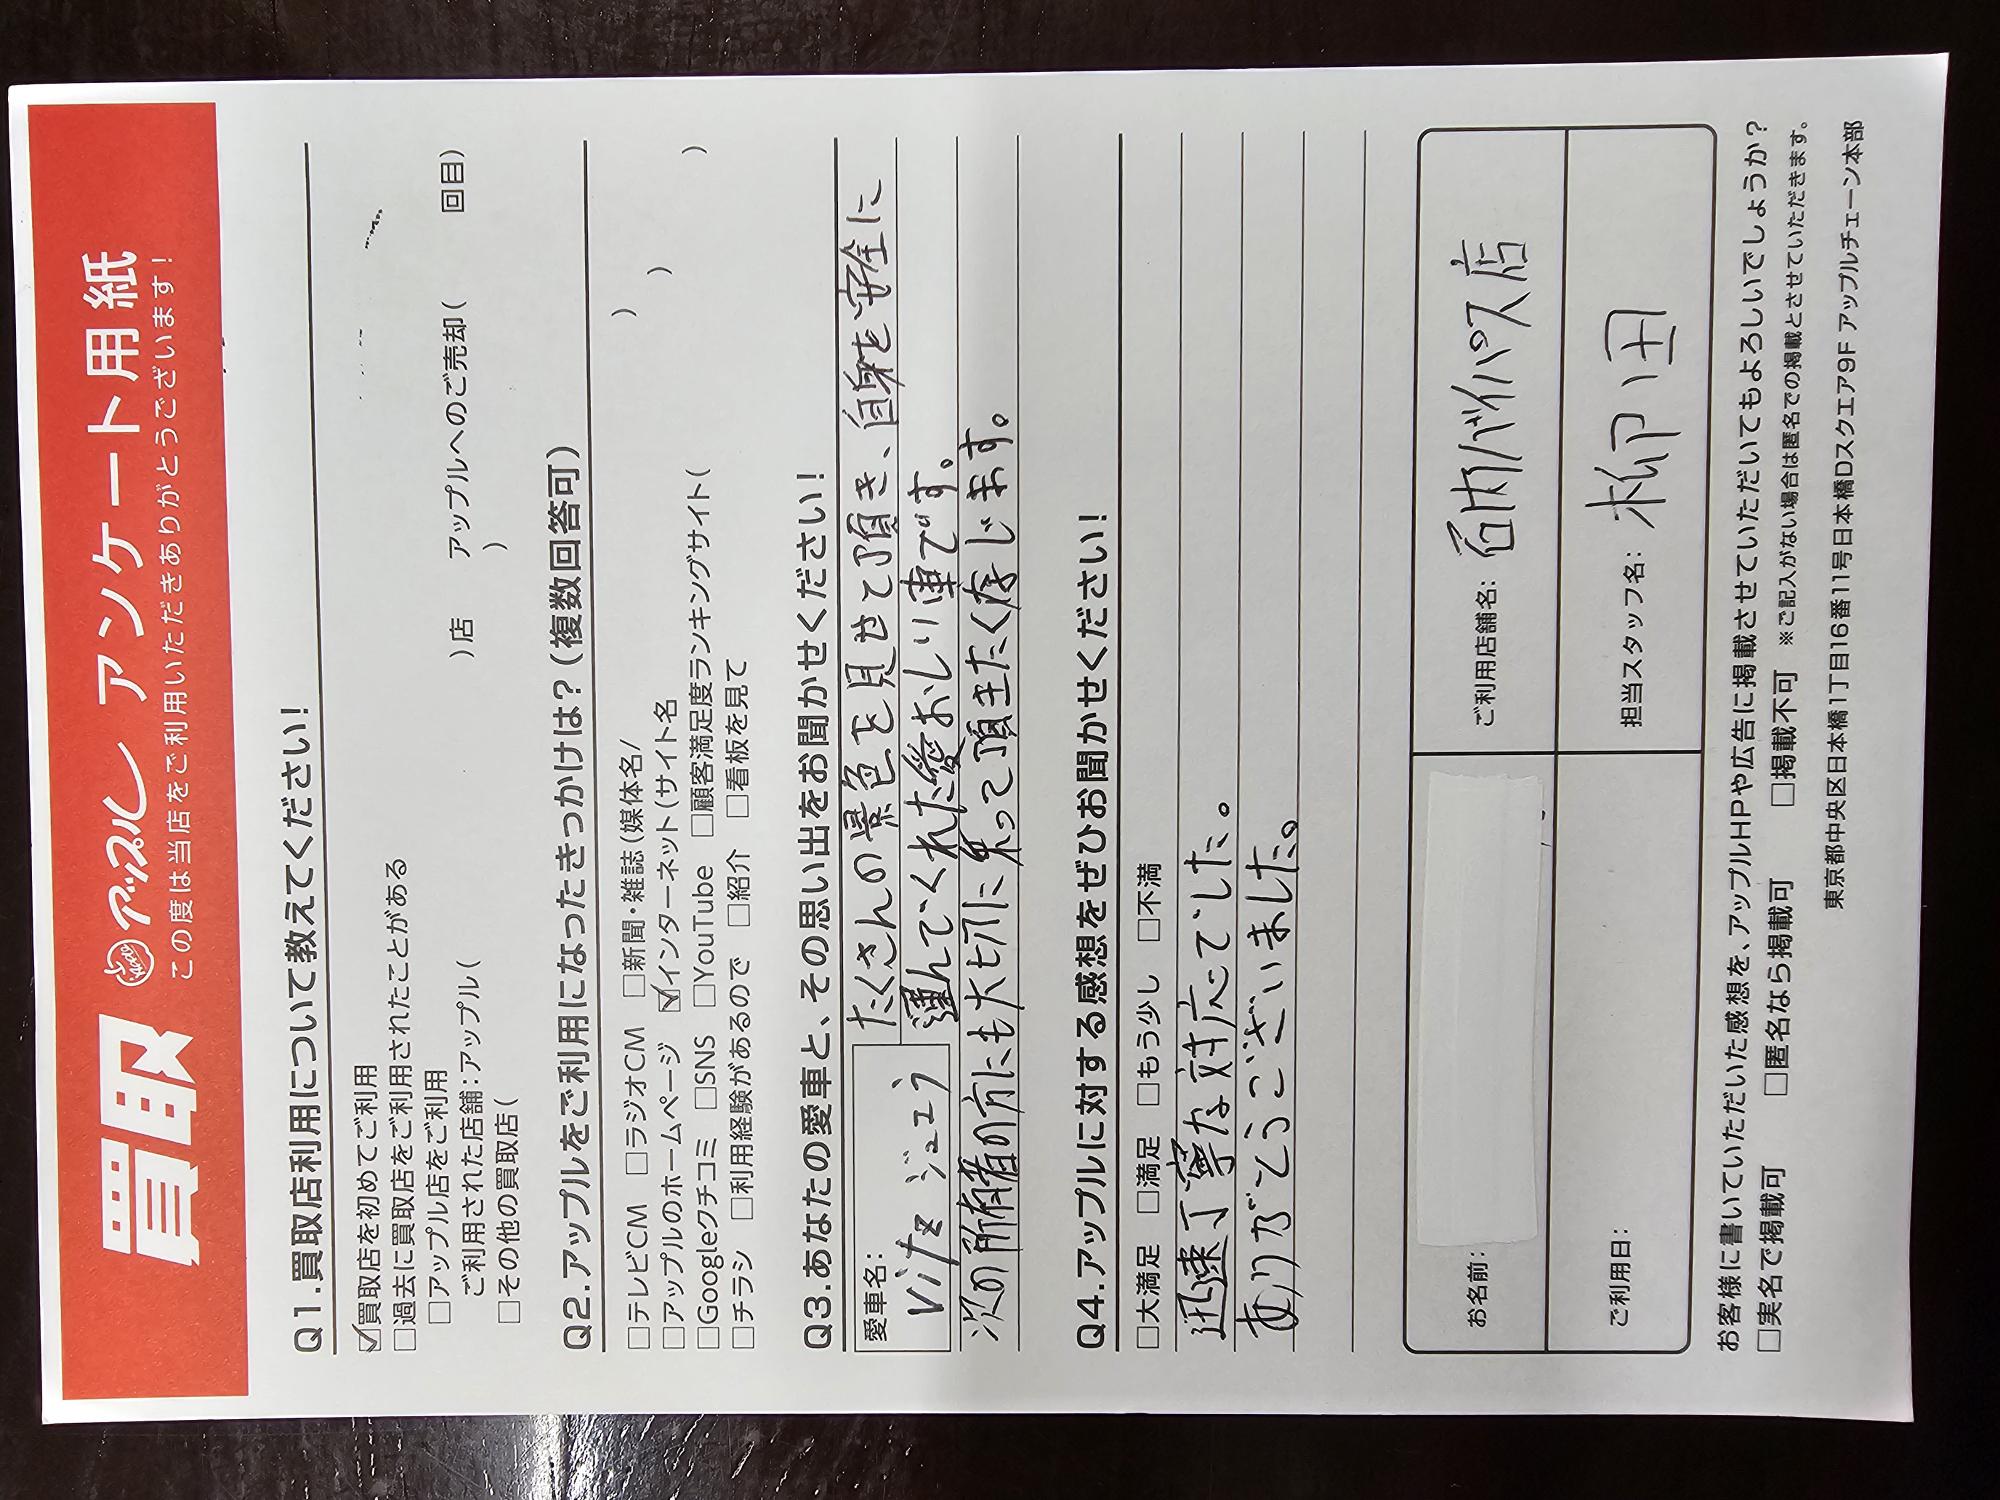 買取 アップル アンケート用紙
この度は当店をご利用いただきありがとうございます!
Q1.買取店利用について教えてください!
☑買取店を初めてご利用
□過去に買取店をご利用されたことがある
□アップル店をご利用
ご利用された店舗:アップル( )店 アップルへのご売却( 回目)
□その他の買取店( )
Q2.アップルをご利用になったきっかけは?(複数回答可)
□テレビCM □ラジオCM □新聞・雑誌(媒体名/ )
□アップルのホームページ ☑インターネット(サイト名 )
□Googleクチコミ □SNS □YouTube □顧客満足度ランキングサイト( )
□チラシ □利用経験があるので □紹介 □看板を見て
Q3.あなたの愛車と、その思い出をお聞かせください!
愛車名:
Vitz ジュエラ
たくさんの景色を見せて頂き、自身を安全に
運んでくれた愛おしい車です。
次の所有者の方にも大切に乗って頂きたく存じます。
Q4.アップルに対する感想をぜひお聞かせください!
□大満足 □満足 □もう少し □不満
迅速丁寧な対応でした。
ありがとうございました。
お名前:
ご利用店舗名: 石内バイパス店
ご利用日:
担当スタッフ名: 柳田
お客様に書いていただいた感想を、アップルHPや広告に掲載させていただいてもよろしいでしょうか?
□実名で掲載可 □匿名なら掲載可 □掲載不可 ※ご記入がない場合は匿名での掲載とさせていただきます。
東京都中央区日本橋1丁目16番11号日本橋Dスクエア9F アップルチェーン本部